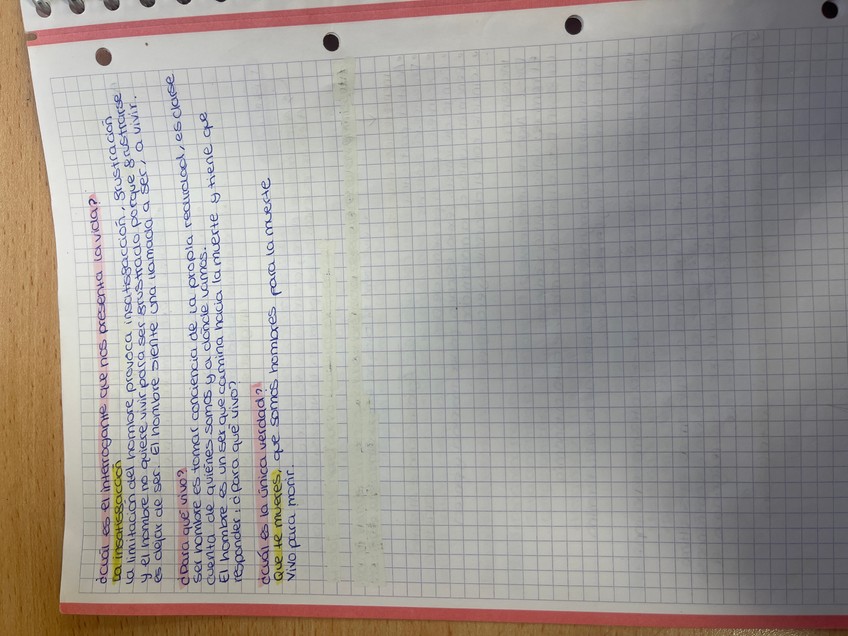 ¿cuál es el interrogante que nos presenta la vida?
La insatisfacción
La limitación del hombre provoca insatisfacción, frustración
y el hombre no quiere vivir para ser frustrado porque frustrarse
es dejar de ser. El hombre siente una llamada a ser, a vivir.
¿Para qué vivo?
Ser hombre es tomar conciencia de la propia realidad, es darse
cuenta de quiénes somos y a dónde vamos.
El hombre es un ser que camina hacia la muerte y tiene que
responder: ¿para qué vivo?
¿cuál es la única verdad?
Que te mueres, que somos hombres para la muerte
vivo para morir.